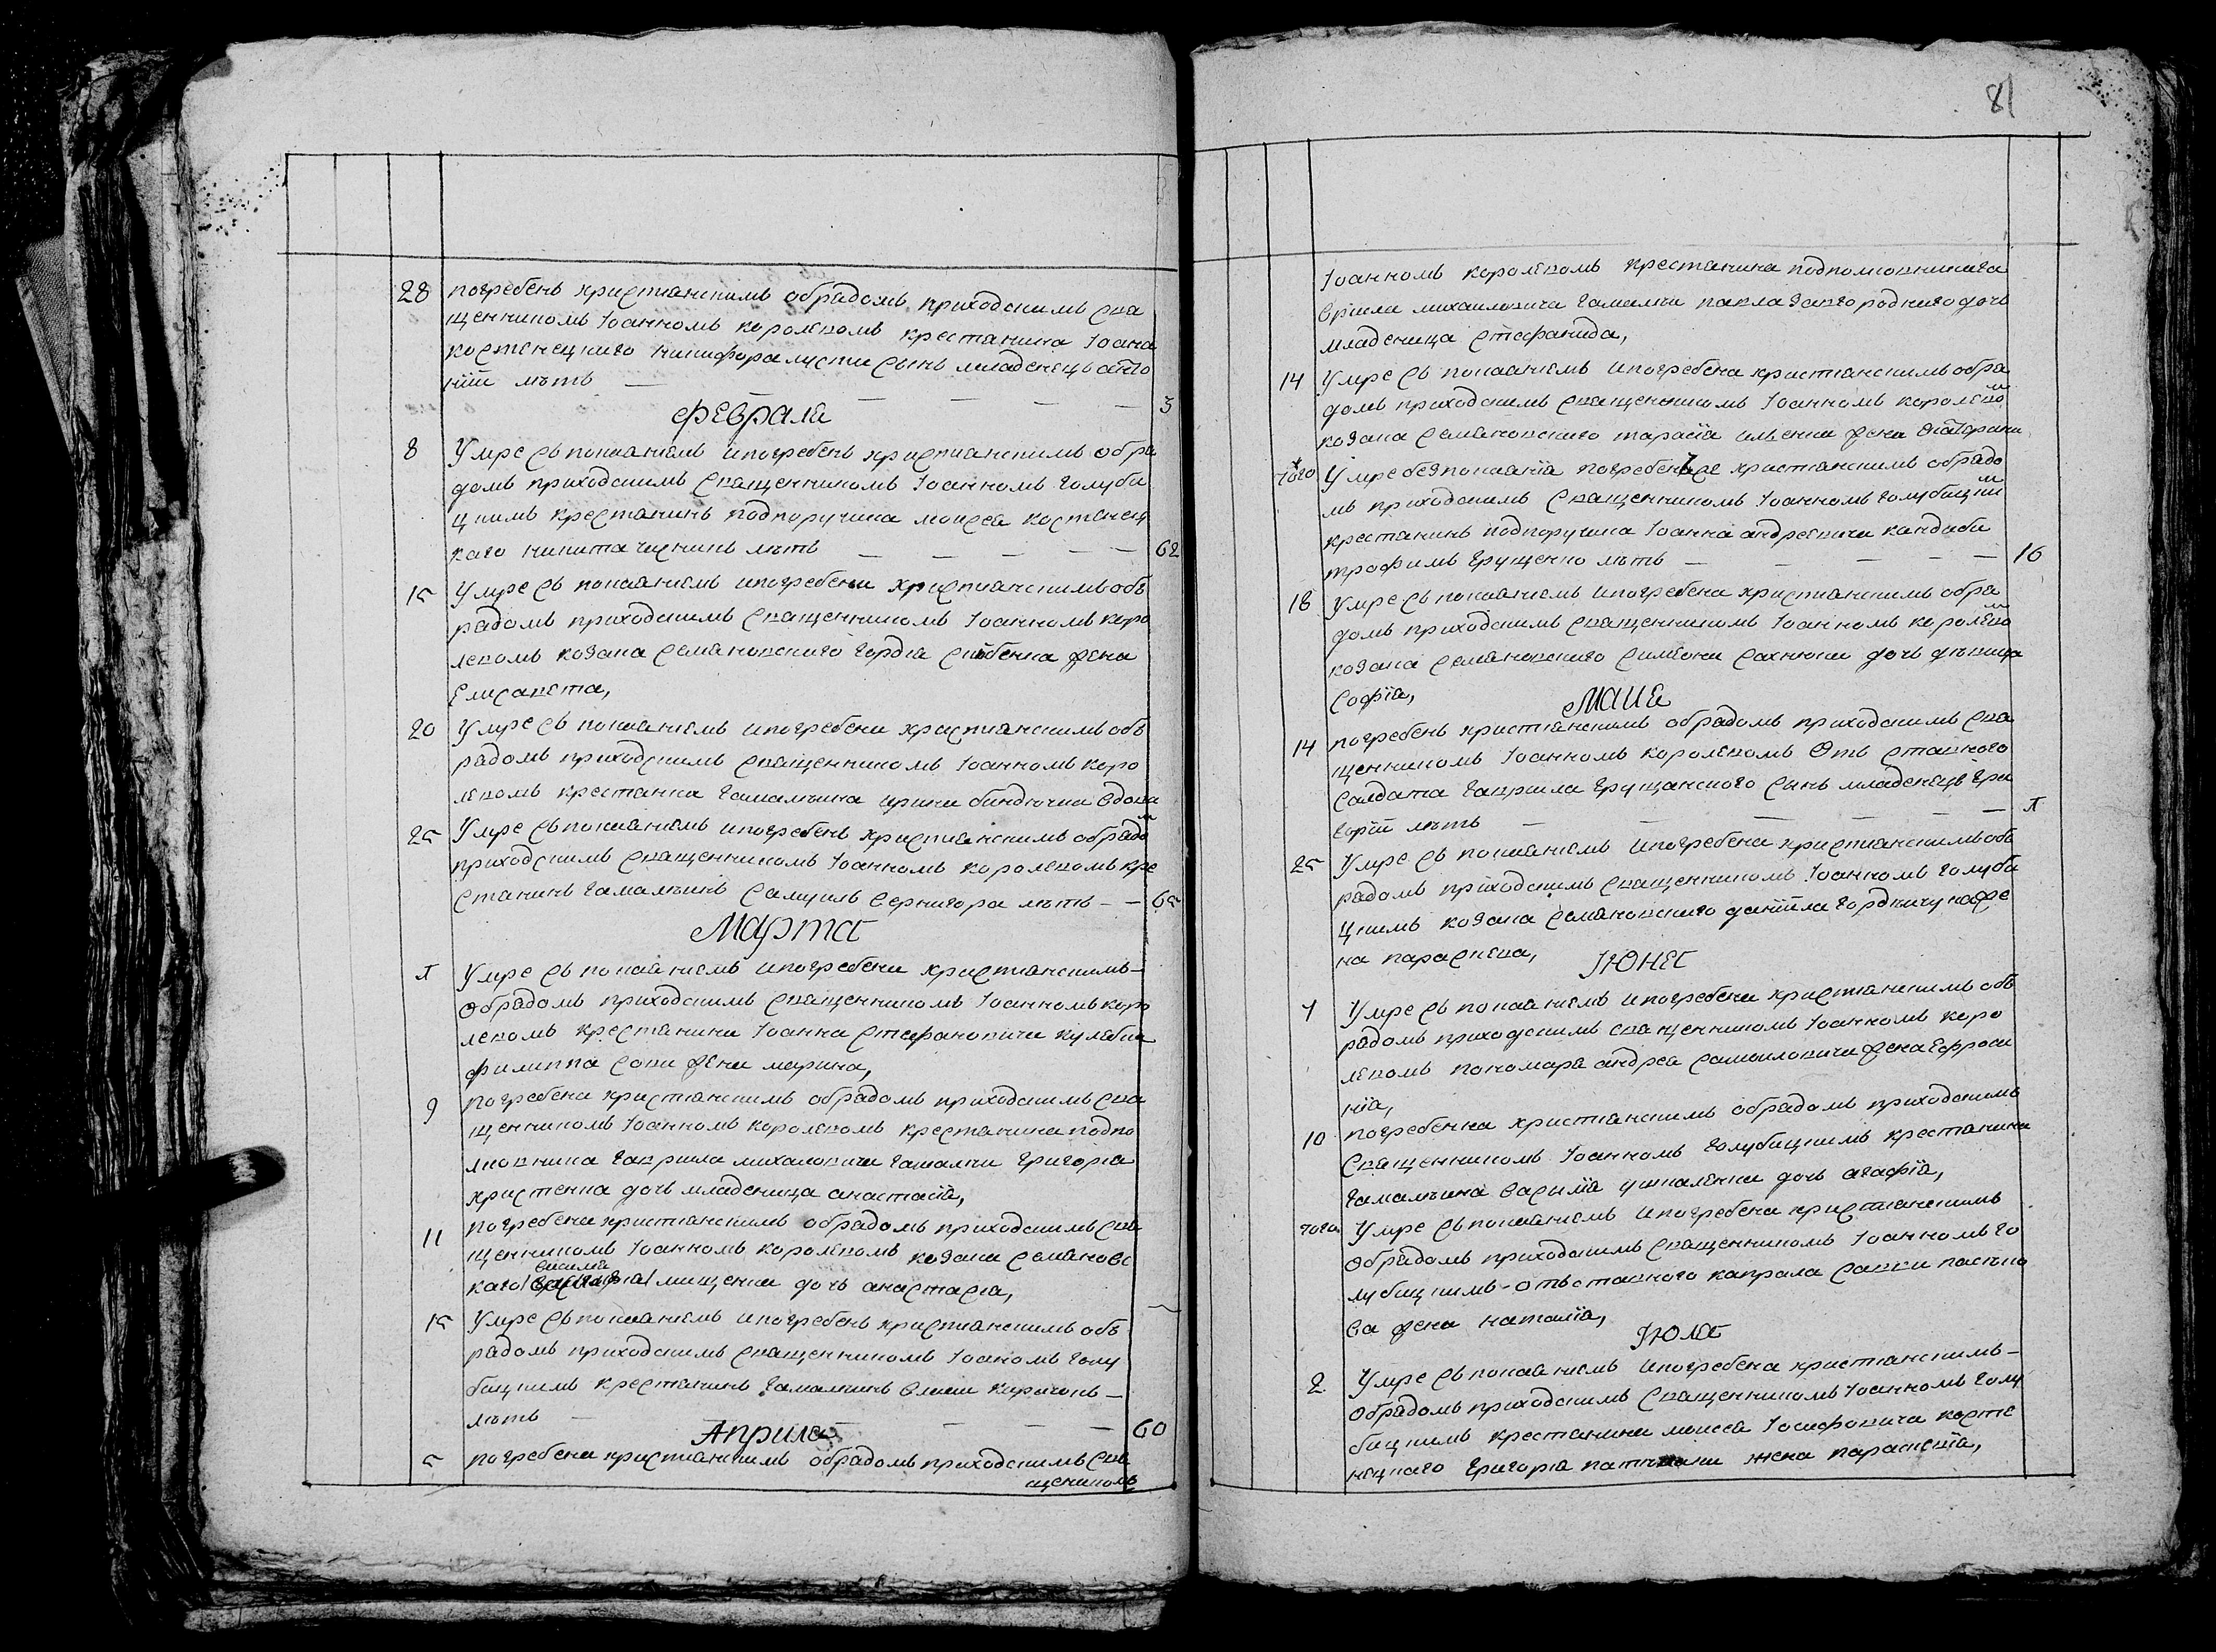 28 погребенъ христианскимъ обрядомъ приходскимъ свя
щенникомъ Іоанномъ королевомъ крестянина Іоана
костенецкого никифора лусти сынъ младенецъ анто
ній летъ — — — — — 3
Февраля
8 Умре съ покаяніемъ и погребенъ христианскимъ обря
домъ приходскимъ священникомъ Іоанномъ голуби
цкимъ крестянинъ подпоручика моисея костенец
каго никита летъ — — — — — 62
15 Умре съ покаяніемъ и погребена христианскимъ об
рядомъ приходскимъ священникомъ Іоанномъ коро
левомъ козака семяновского гордея жена
Елисавета,
20 Умре съ покаяніемъ и погребена христианскимъ об
рядомъ приходскимъ священникомъ Іоанномъ коро
левомъ крестянка гамалѣина ирина биндючка вдова
25 Умре съ покаяніемъ и погребенъ христианскимъ обрядом
приходскимъ священникомъ Іоанномъ королевомъ кре
стянинъ гамалѣинъ самуилъ вернигора летъ — — 65
Марта
Умре съ покаяніемъ и погребена христианскимъ —
обрядомъ приходскимъ священникомъ Іоанномъ коро
левомъ крестянина Іоанна стефановича кулябки
филиппа совы жена марина,
9 погребена христианскимъ обрядомъ приходскимъ свя
щенникомъ Іоанномъ королевомъ крестянина подпо
лковника гавриила михаловича гамалѣи григорія
христенка дочь младеница анастасія,
11 погребена христианскимъ обрядомъ приходскимъ свя
щенникомъ Іоанномъ королевомъ козака семяновс
кого василя мищенка дочь анастасія,
15 Умре съ покаяніемъ и погребенъ христианскимъ об
рядомъ приходскимъ священникомъ Іоаномъ голу
бицкимъ крестянинъ гамалѣинъ —
летъ — — — — 60
Априля
5 погребена христианскимъ обрядомъ приходскимъ свя
щеником
81
Іоанномъ королевомъ крестянина подполковникага
михаиловича гамалѣи павла загородного дочь
младеница стефанида,
14 Умре съ покаяніемъ и погребена христианскимъ обря
домъ приходскимъ священникомъ Іоанномъ королевом
козака семяновского тарасія илченка жена
того Умре без покаянія погребен же христианскимъ обрядо
мъ приходскимъ священникомъ Іоанномъ голубицким
крестянинъ подпоручика Іоанна андреевича кандиби
трофимъ грущенко летъ — — — — 16
18 Умре съ покаяніемъ и погребена христианскимъ обря
домъ приходскимъ священникомъ Іоанномъ королевом
козака семяновского симеона сахнюки дочь девица
Софія,
Маия
14 погребенъ христианскимъ обрядомъ приходскимъ свя
щенникомъ Іоанномъ королевомъ отъ ставного
солдата гавриила грущанского сынъ младенецъ гри
горій летъ — — — — —
25 Умре съ покаяніемъ и погребена христианскимъ об
рядомъ приходскимъ священникомъ Іоанномъ голуби
цкимъ козака семяновского даніила же
на параскева,
Июня
Умре съ покаяніемъ и погребена христианскимъ об
рядомъ приходскимъ священникомъ Іоанномъ коро
левомъ пономаря андрея самоиловича жена Ефроси
нія,
10 погребенна христианскимъ обрядомъ приходскимъ
священникомъ Іоанномъ голубицкимъ крестянина
гамалѣина василія дочь агафія,
того Умре съ покаяніемъ и погребена христианскимъ
обрядомъ приходскимъ священникомъ Іоанномъ го
лубицкимъ отъставного капрала савки
ва жена наталія,
Июля
2 Умре съ покаяніемъ и погребена христианскимъ —
обрядомъ приходскимъ священникомъ Іоанномъ голу
бицкимъ крестянина моисея Іосифовича косте
нецкаго григорія жена параскевія,